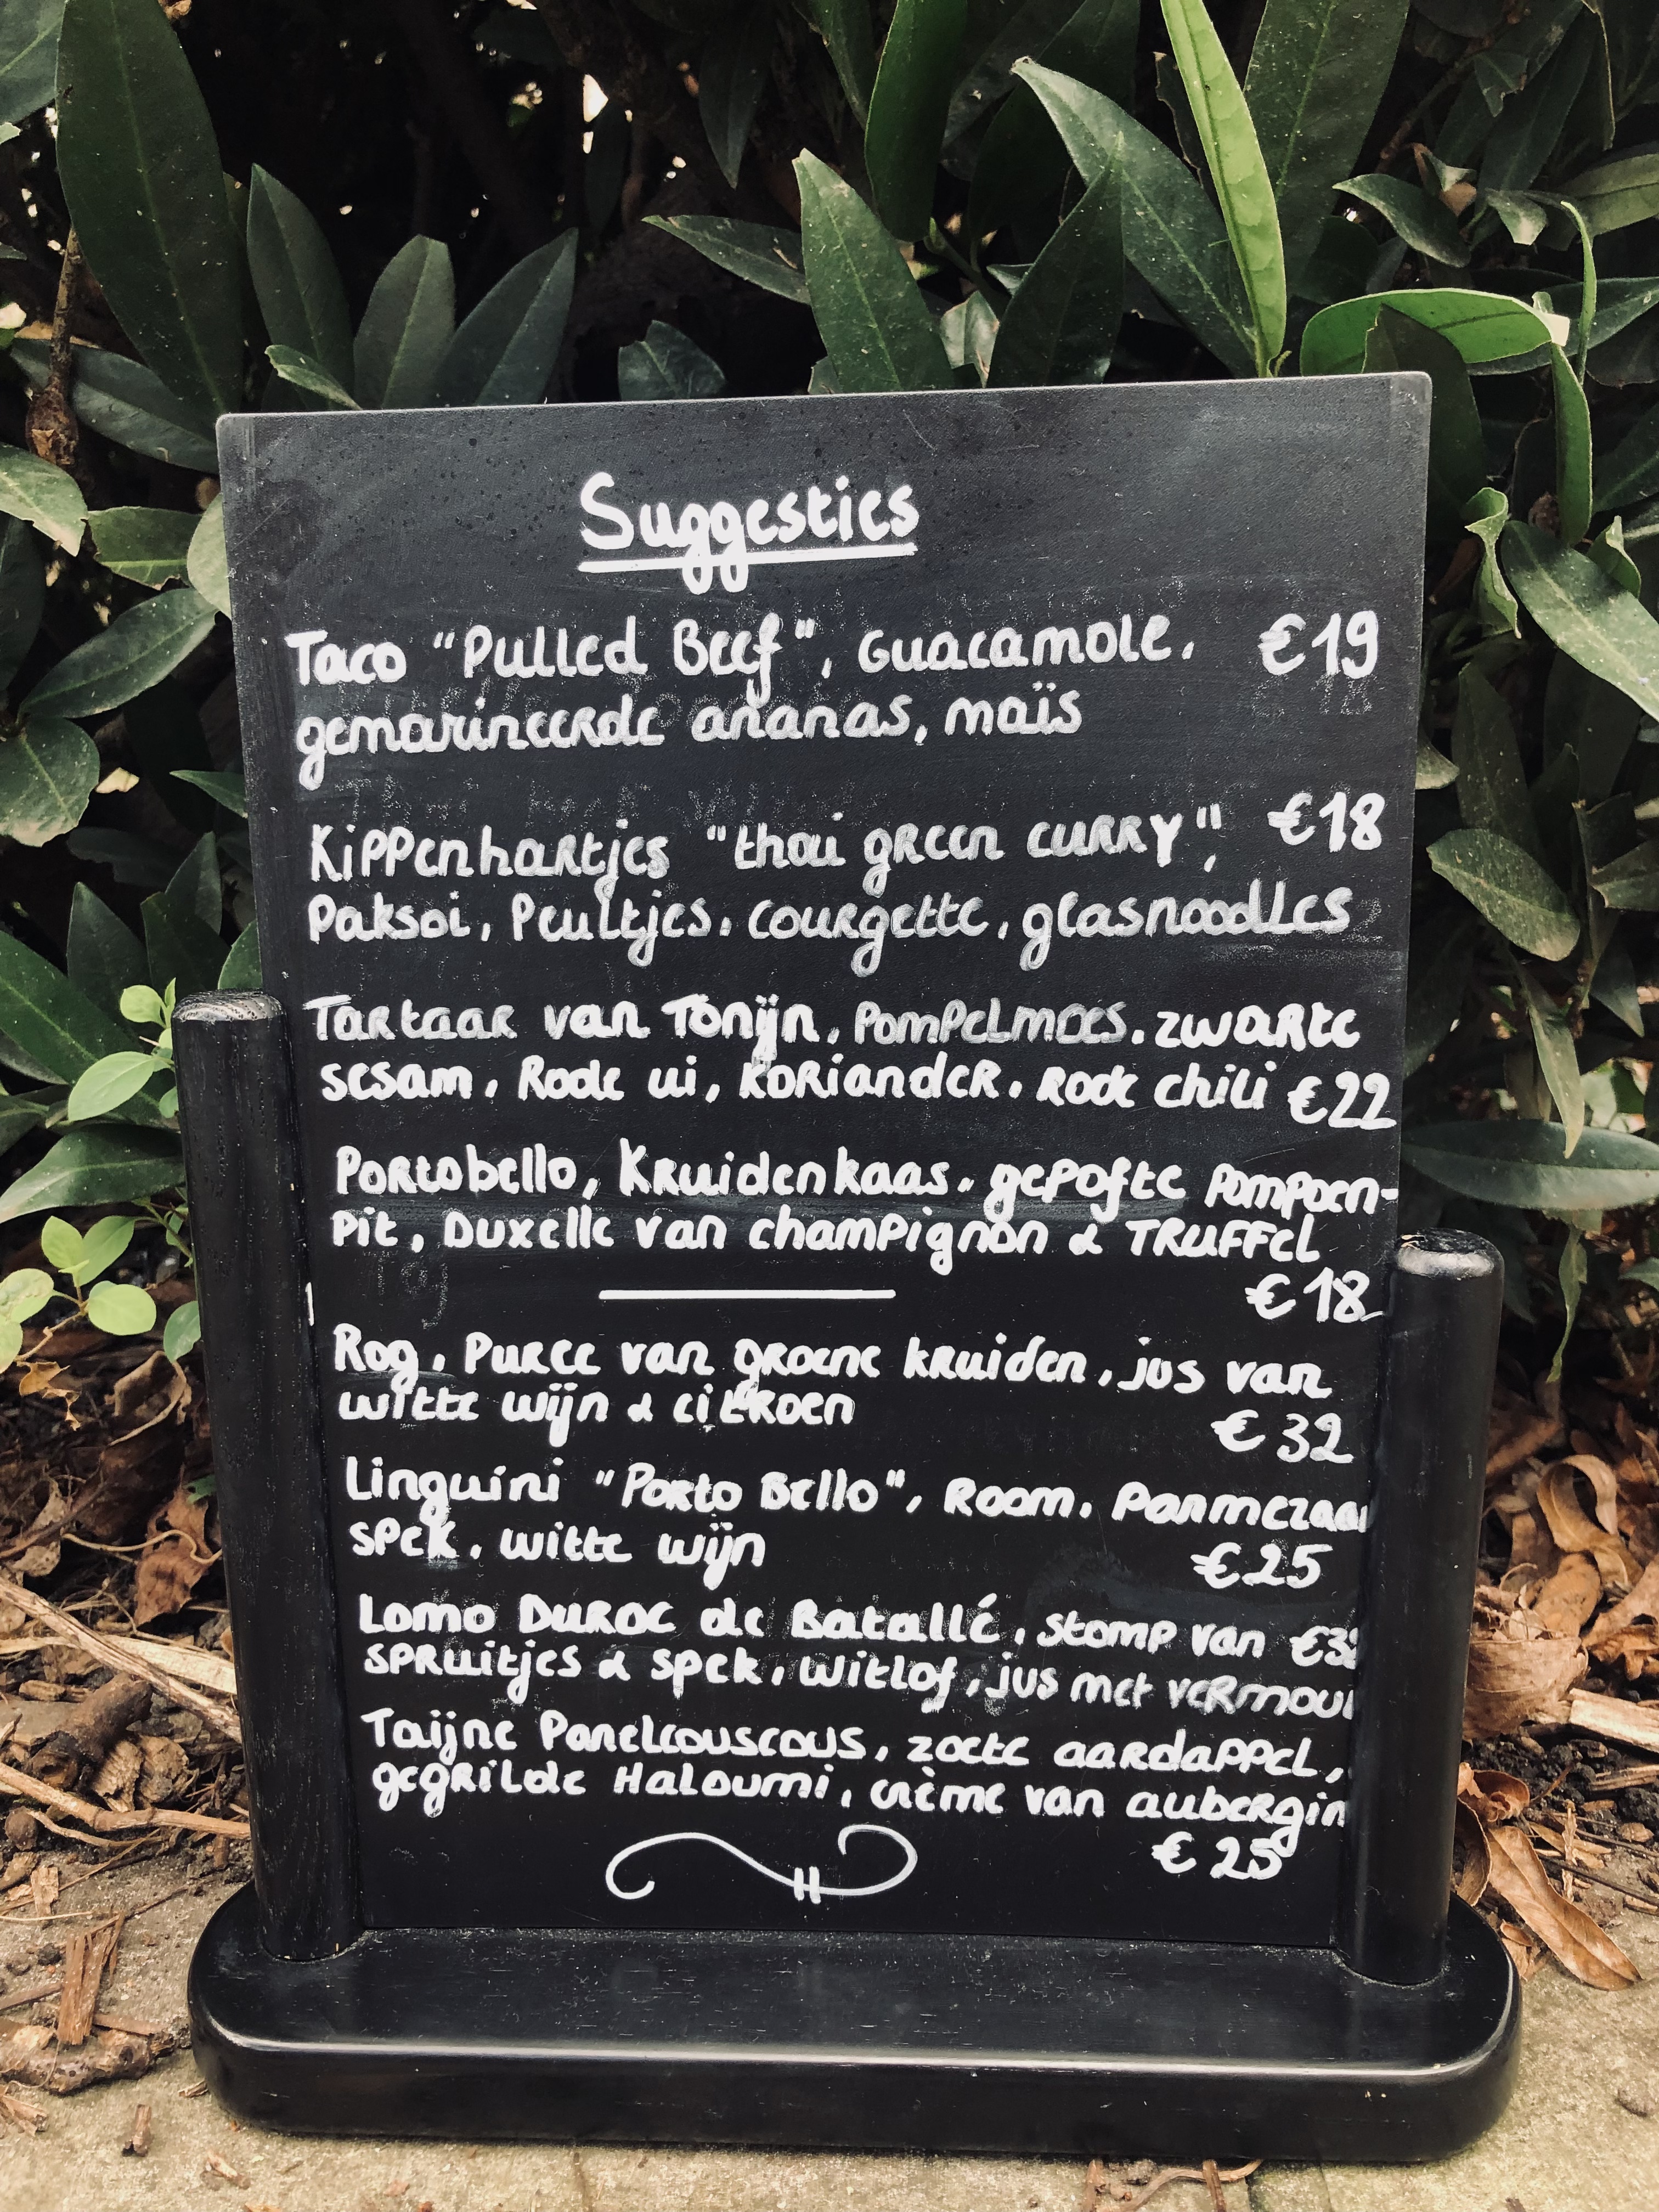 Suggesties
Taco "Pulled Beef", Guacamole, €19
gemarineerde ananas, maïs
Kippenhartjes "thai green curry", €18
Paksoi, Peultjes, courgette, glasnoodles
Tartaar van Tonijn, Pompelmoes, zwarte
sesam, Rode ui, koriander, Rode chili €22
Portobello, Kruidenkaas, gepofte pompoen-
pit, Duxelle van champignon & TRUFFEL
€18
Rog, Puree van groene kruiden, jus van
witte wijn & citroen €32
Linguini "Porto Bello", Room, Parmezaan
spek, witte wijn €25
Lomo DUROC de Batallé, stomp van
spruitjes & spek, witlof, jus met vermou
Taijne Parelcouscous, zoete aardappel,
gegrilde Haloumi, crème van aubergin
€25